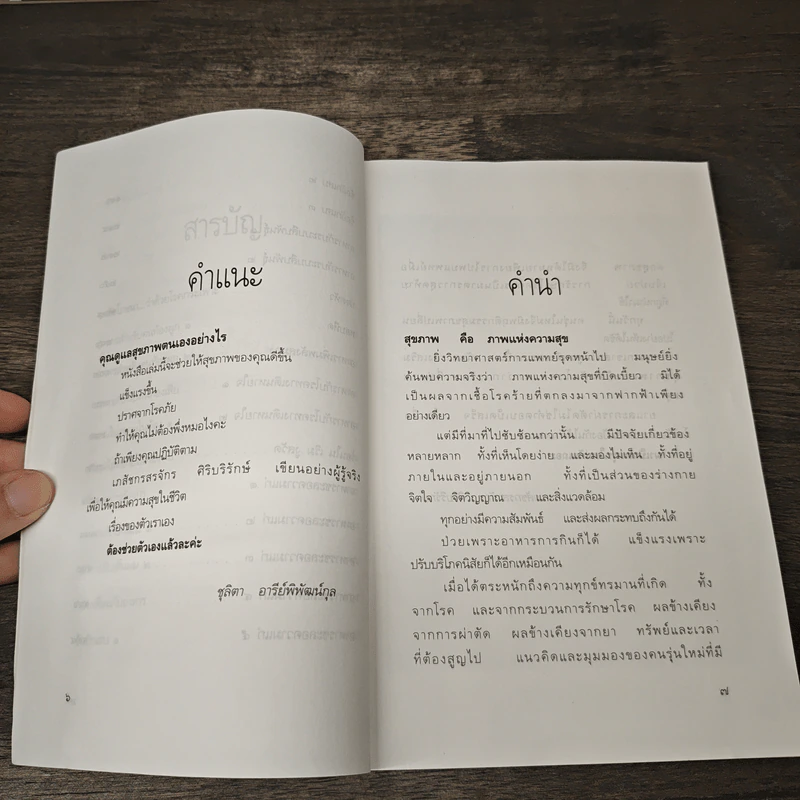 สารบัญ
คำแนะ
คุณดูแลสุขภาพตนเองอย่างไร
หนังสือเล่มนี้จะช่วยให้สุขภาพของคุณดีขึ้น
แข็งแรงขึ้น
ปราศจากโรคภัย
ทำให้คุณไม่ต้องพึ่งหมอไงคะ
ถ้าเพียงคุณปฏิบัติตาม
เภสัชกรสรจักร ศิริบริรักษ์ เขียนอย่างผู้รู้จริง
เพื่อให้คุณมีความสุขในชีวิต
เรื่องของตัวเราเอง
ต้องช่วยตัวเองแล้วละค่ะ
ชุลิตา อารีย์พิพัฒน์กุล
๖
คำนำ
สุขภาพ คือ ภาพแห่งความสุข
ยิ่งวิทยาศาสตร์การแพทย์รุดหน้าไป มนุษย์ยิ่ง
ค้นพบความจริงว่า ภาพแห่งความสุขที่บิดเบี้ยว มิได้
เป็นผลจากเชื้อโรคร้ายที่ตกลงมาจากฟากฟ้าเพียง
อย่างเดียว
แต่มีที่มาที่ไปซับซ้อนกว่านั้น มีปัจจัยเกี่ยวข้อง
หลายหลาก ทั้งที่เห็นโดยง่าย และมองไม่เห็น ทั้งที่อยู่
ภายในและอยู่ภายนอก ทั้งที่เป็นส่วนของร่างกาย
จิตใจ จิตวิญญาณ และสิ่งแวดล้อม
ทุกอย่างมีความสัมพันธ์ และส่งผลกระทบถึงกันได้
ป่วยเพราะอาหารการกินก็ได้ แข็งแรงเพราะ
ปรับบริโภคนิสัยก็ได้อีกเหมือนกัน
เมื่อได้ตระหนักถึงความทุกข์ทรมานที่เกิด ทั้ง
จากโรค และจากกระบวนการรักษาโรค ผลข้างเคียง
จากการผ่าตัด ผลข้างเคียงจากยา ทรัพย์และเวลา
ที่ต้องสูญไป แนวคิดและมุมมองของคนรุ่นใหม่ที่มี
๗